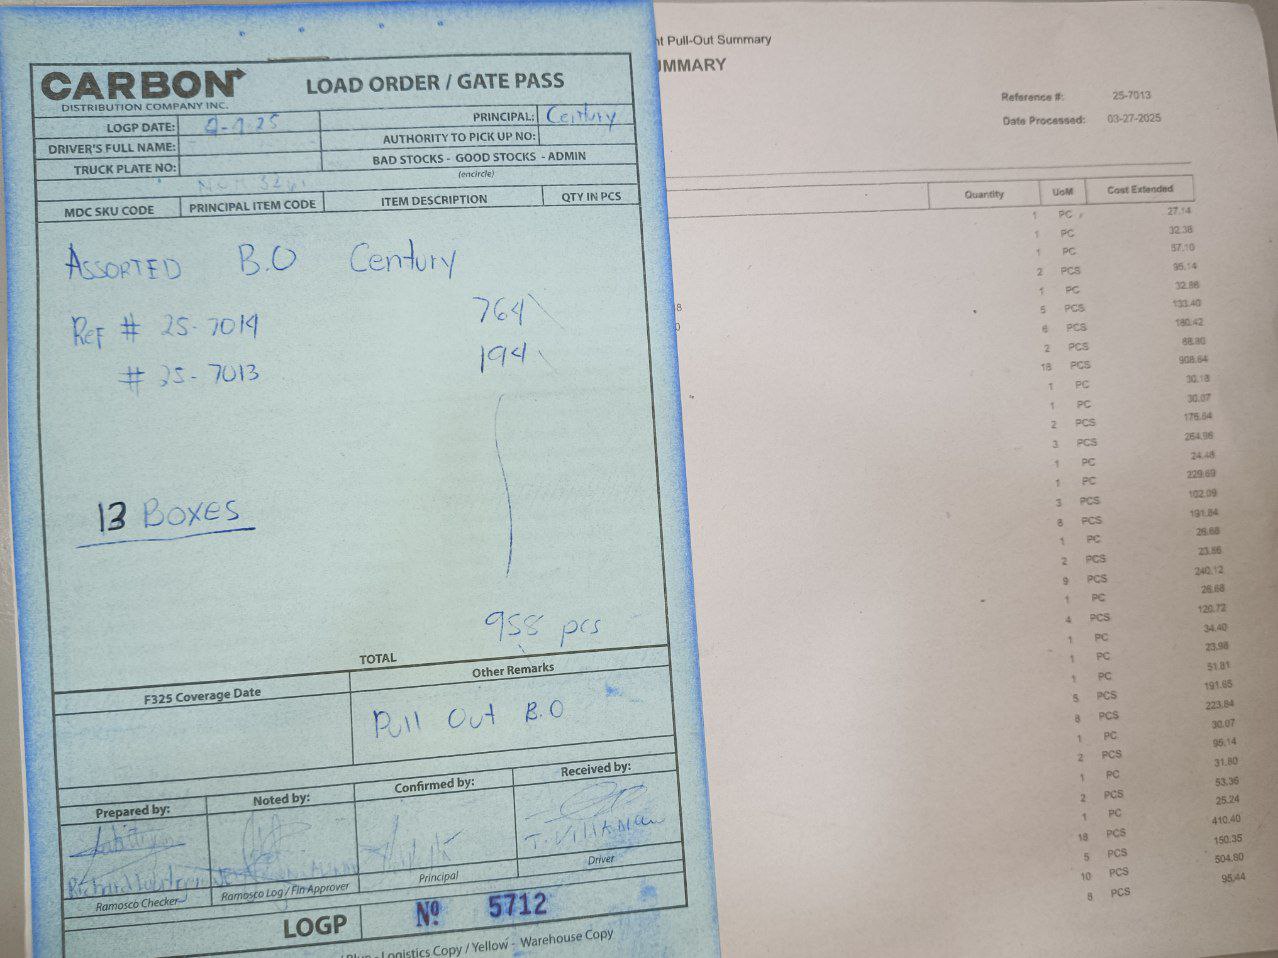 CARBON
DISTRIBUTION COMPANY INC.
LOAD ORDER / GATE PASS
LOGP DATE:
PRINCIPAL: Century
DRIVER'S FULL NAME:
AUTHORITY TO PICK UP NO:
TRUCK PLATE NO:
BAD STOCKS - GOOD STOCKS - ADMIN
(encircle)
MDC SKU CODE PRINCIPAL ITEM CODE ITEM DESCRIPTION QTY IN PCS
ASSORTED B.O Century
Ref # 25-7014 764
# 25-7013 194
13 BOXES
958 pcs
TOTAL
F325 Coverage Date Other Remarks
Pull Out B.O
Prepared by: Noted by: Confirmed by: Received by:
Ramosco Checker Ramosco Log / Fin Approver Principal Driver
LOGP Nº 5712
- Logistics Copy / Yellow - Warehouse Copy
t Pull-Out Summary
MMARY
Reference #: 25-7013
Date Processed: 03-27-2025
Quantity UoM Cost Extended
1 PC 27.14
1 PC 32.38
1 PC 57.10
2 PCS 95.14
1 PC 32.86
5 PCS 133.40
6 PCS 180.42
2 PCS 88.80
18 PCS 908.64
1 PC 30.18
1 PC 30.07
2 PCS 176.64
3 PCS 264.96
1 PC 24.48
1 PC 229.69
3 PCS 102.09
8 PCS 191.84
1 PC 26.68
2 PCS 23.86
9 PCS 240.12
1 PC 26.68
4 PCS 120.72
1 PC 34.40
1 PC 23.98
1 PC 51.81
5 PCS 191.65
8 PCS 223.84
1 PC 30.07
2 PCS 95.14
1 PC 31.80
2 PCS 53.36
1 PC 25.24
18 PCS 410.40
5 PCS 150.35
10 PCS 504.80
8 PCS 95.44